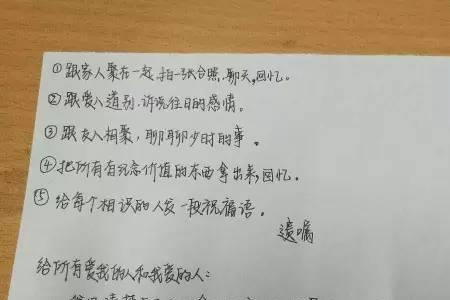 ①跟家人聚在一起,拍一张合照,聊天,回忆。
②跟爱人道别,诉说往日的感情。
③跟友人相聚,聊聊少时的事。
④把所有有纪念价值的东西拿出来,回忆。
⑤给每个相识的人发一段祝福语。
遗嘱
给所有爱我的人和我爱的人: